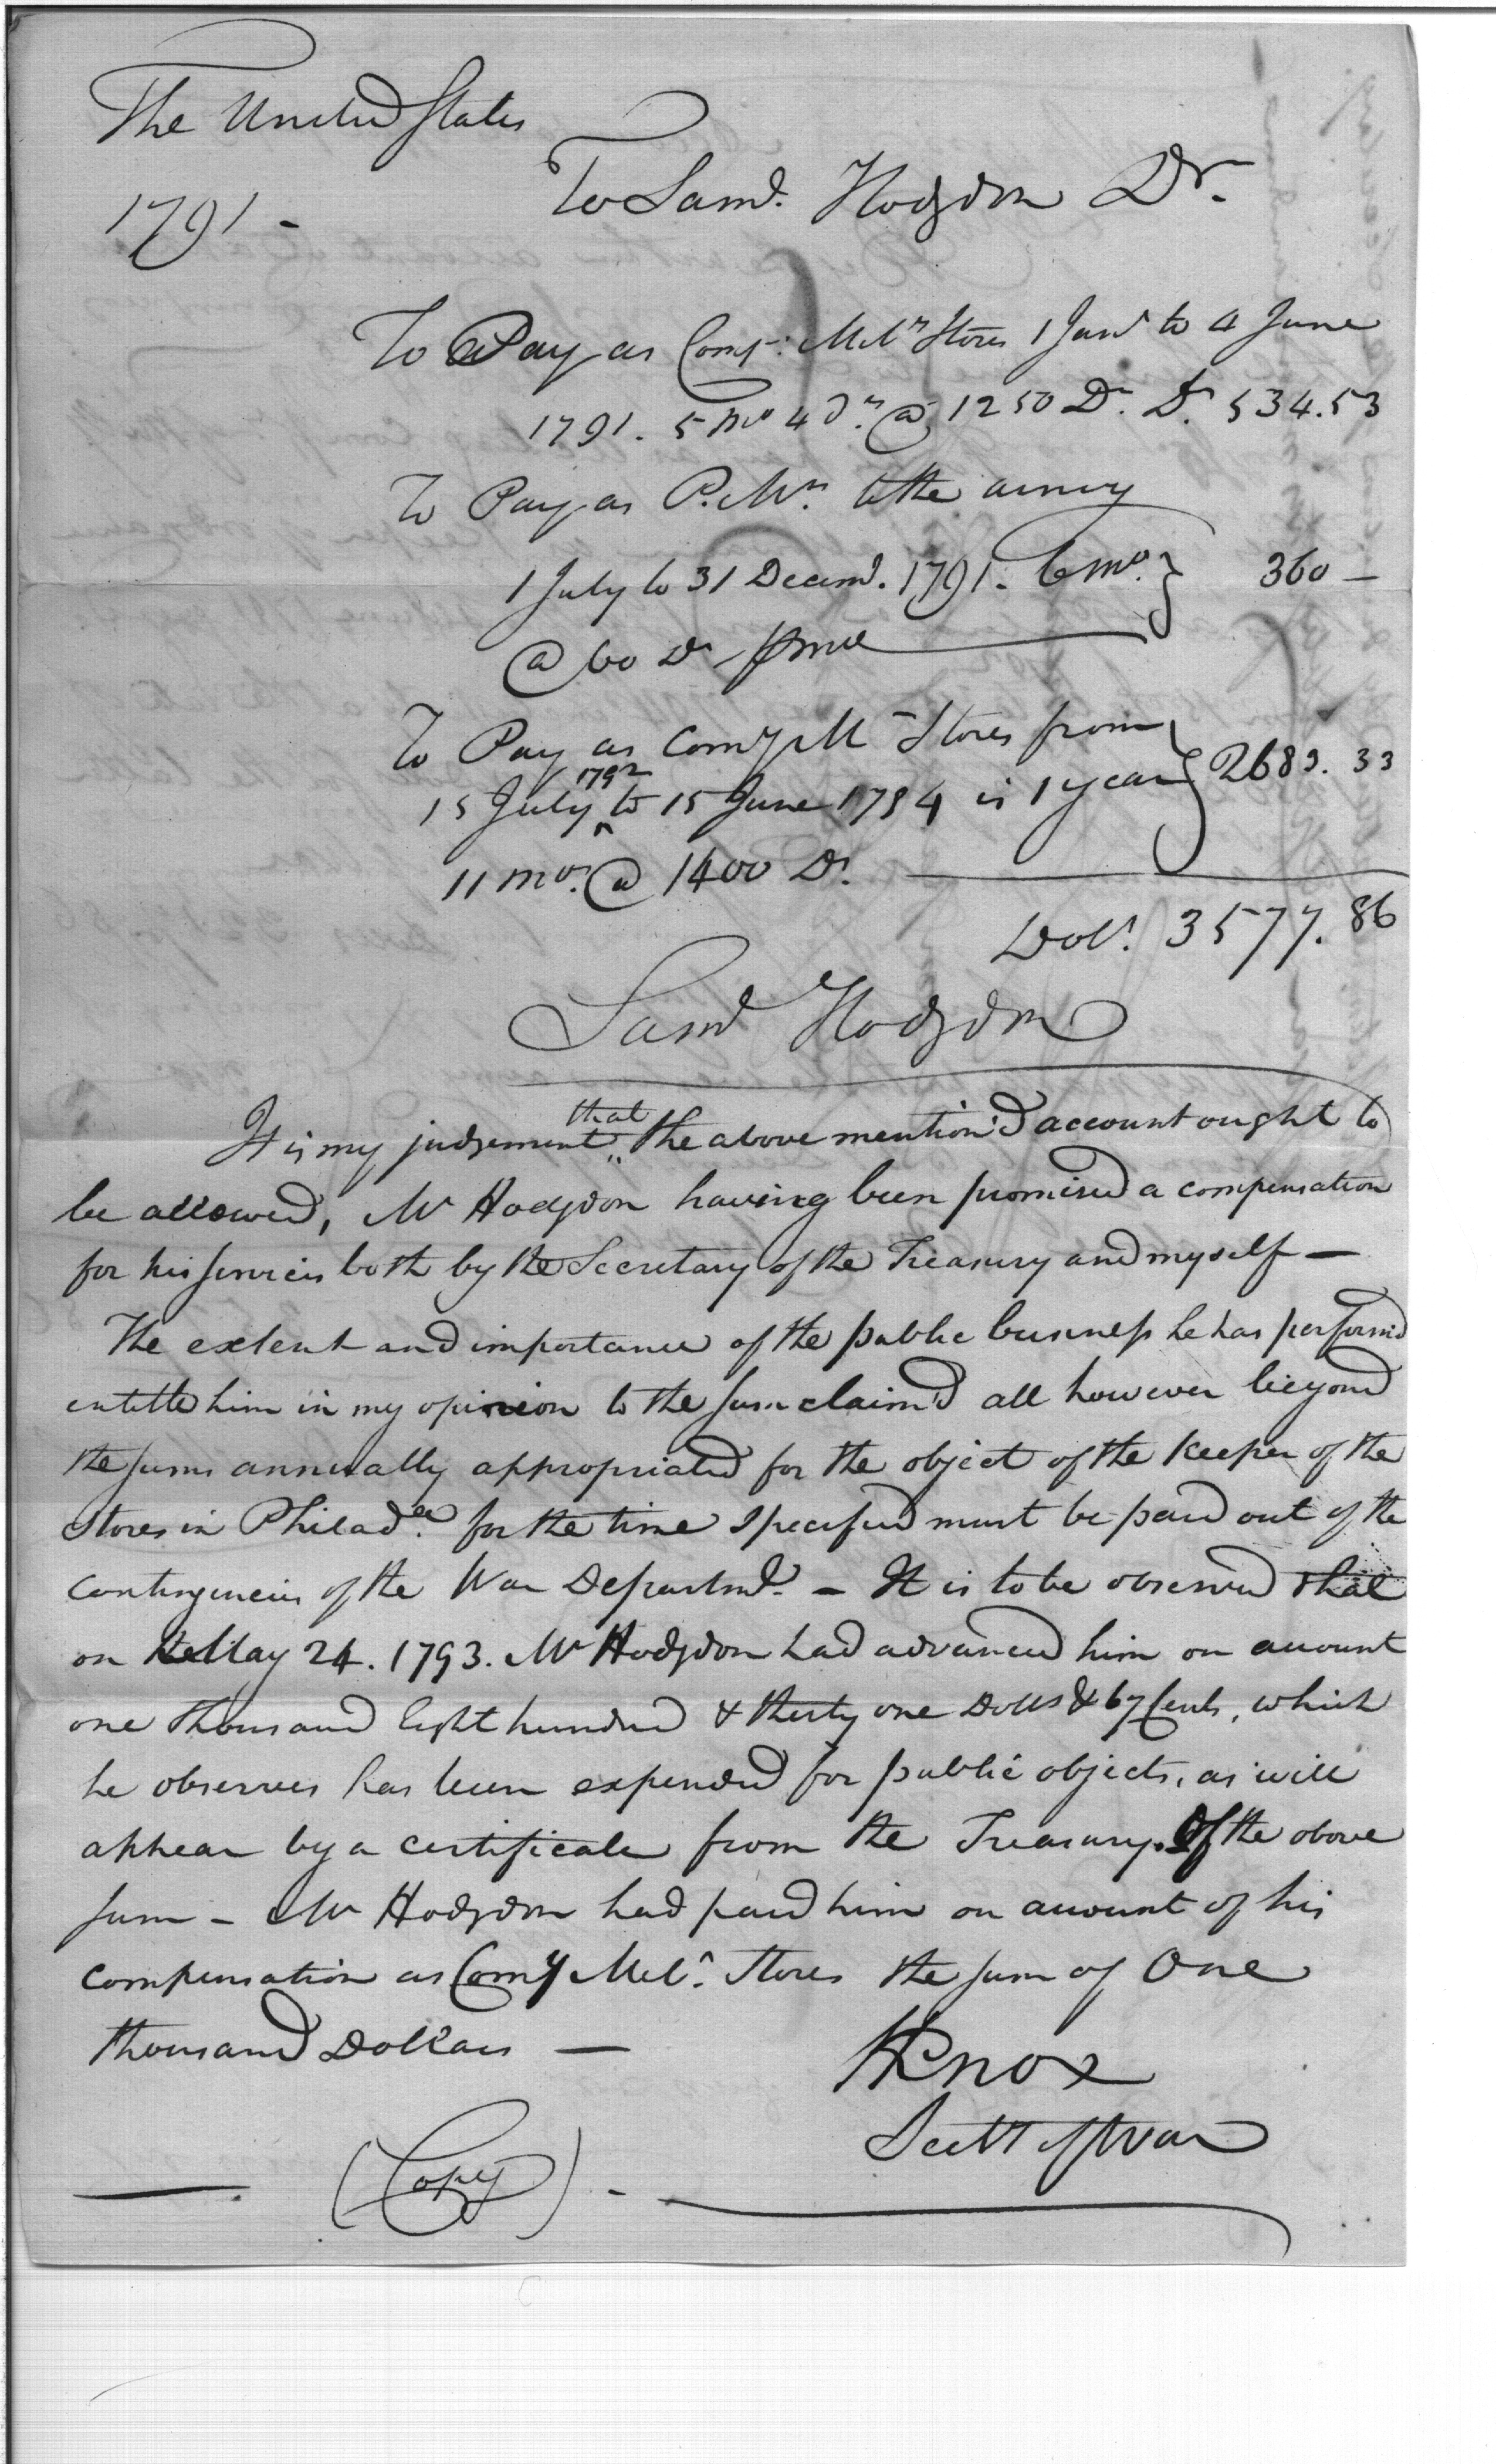 The United States
To Saml. Hodgdon Dr.
1791 -
To Pay as Comy: Mily Stores 1 Jany to 4 June
1791. 5 mo 4 ds. @ 1250 Dr. Dr. 534.53
To Pay as Q. Mr. to the army
1 July to 31 Decemr. 1791. 6 mo. } 360 —
@ 60 Ds
To Pay as Comy M Stores from
15 July 1792 to 15 June 1794 is 1 year } 2683. 33
11 mos. @ 1400 Ds.
Dols. 3577. 86
Saml Hodgdon
It is my judgement that the above mention'd account ought to
be allowed, Mr Hodgdon having been promised a compensation
for his services both by the Secretary of the Treasury and myself —
The extent and importance of the public business he has perform'd
entitle him in my opinion to the sum claim'd all however beyond
the sums annually appropriated for the object of the Keeper of the
Stores in Philada. for the time specified must be paid out of the
contingencies of the War Departmt. - It is to be observed that
on the May 24. 1793. Mr Hodgdon had advanced him on account
one thousand eight hundred & thirty one Dolls & 67 Cents, which
he observes has been expended for public objects, as will
appear by a certificate from the Treasury. Of the above
sum - Mr Hodgdon had paid him on account of his
compensation as Comy Mily. Stores the sum of One
thousand Dollars —
HKnox
Secy of War
(Copy) -